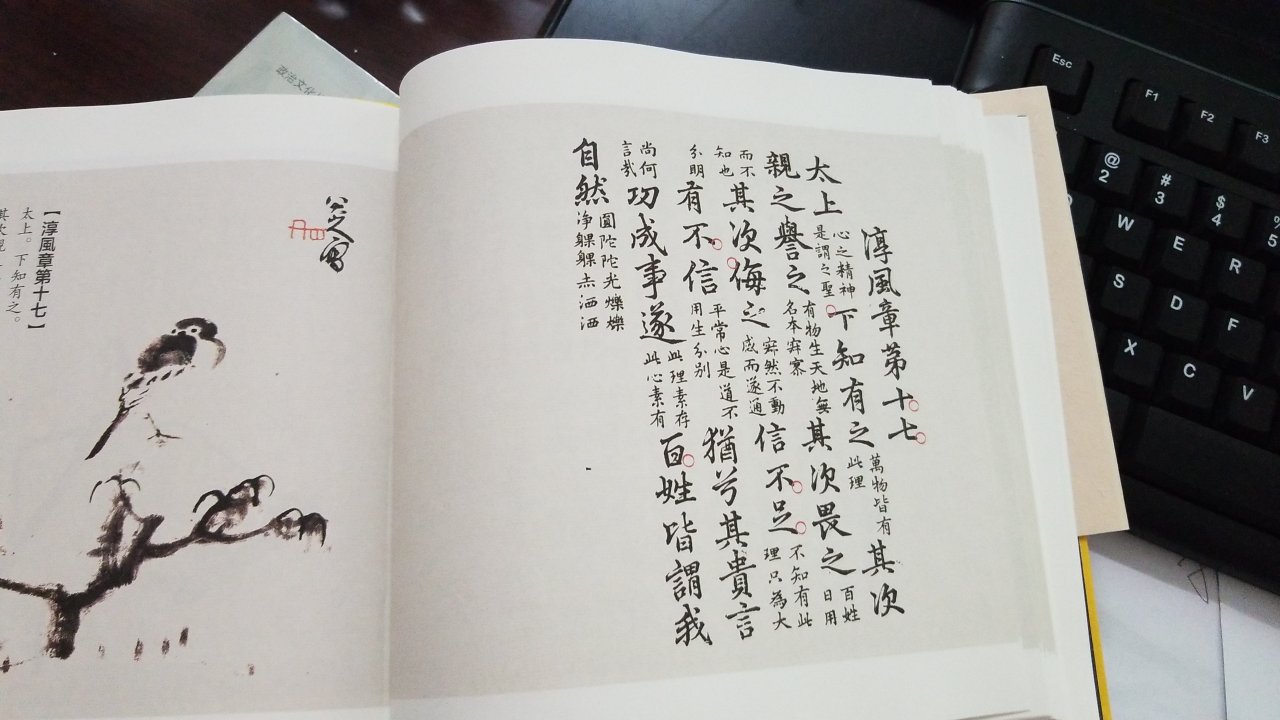 淳風章第十七
太上心之精神是謂之聖下知有之萬物皆有此理其次
親之譽之有物生天地無名本寂寥其次畏之百姓日用
而不知也其次侮之寂然不動感而遂通信不足不知有此理只為大
分明有不信平常心是道不用生分别猶兮其貴言
尚何言哉功成事遂此理素存此心素有百姓皆謂我
自然圓陀陀光爍爍净躶躶赤洒洒
八大山人寫
【淳風章第十七】
太上。下知有之。
政治文化
Esc F1 F2 F3
@ 2 # 3 $ 4 % 5
W E R
S D F
X C V